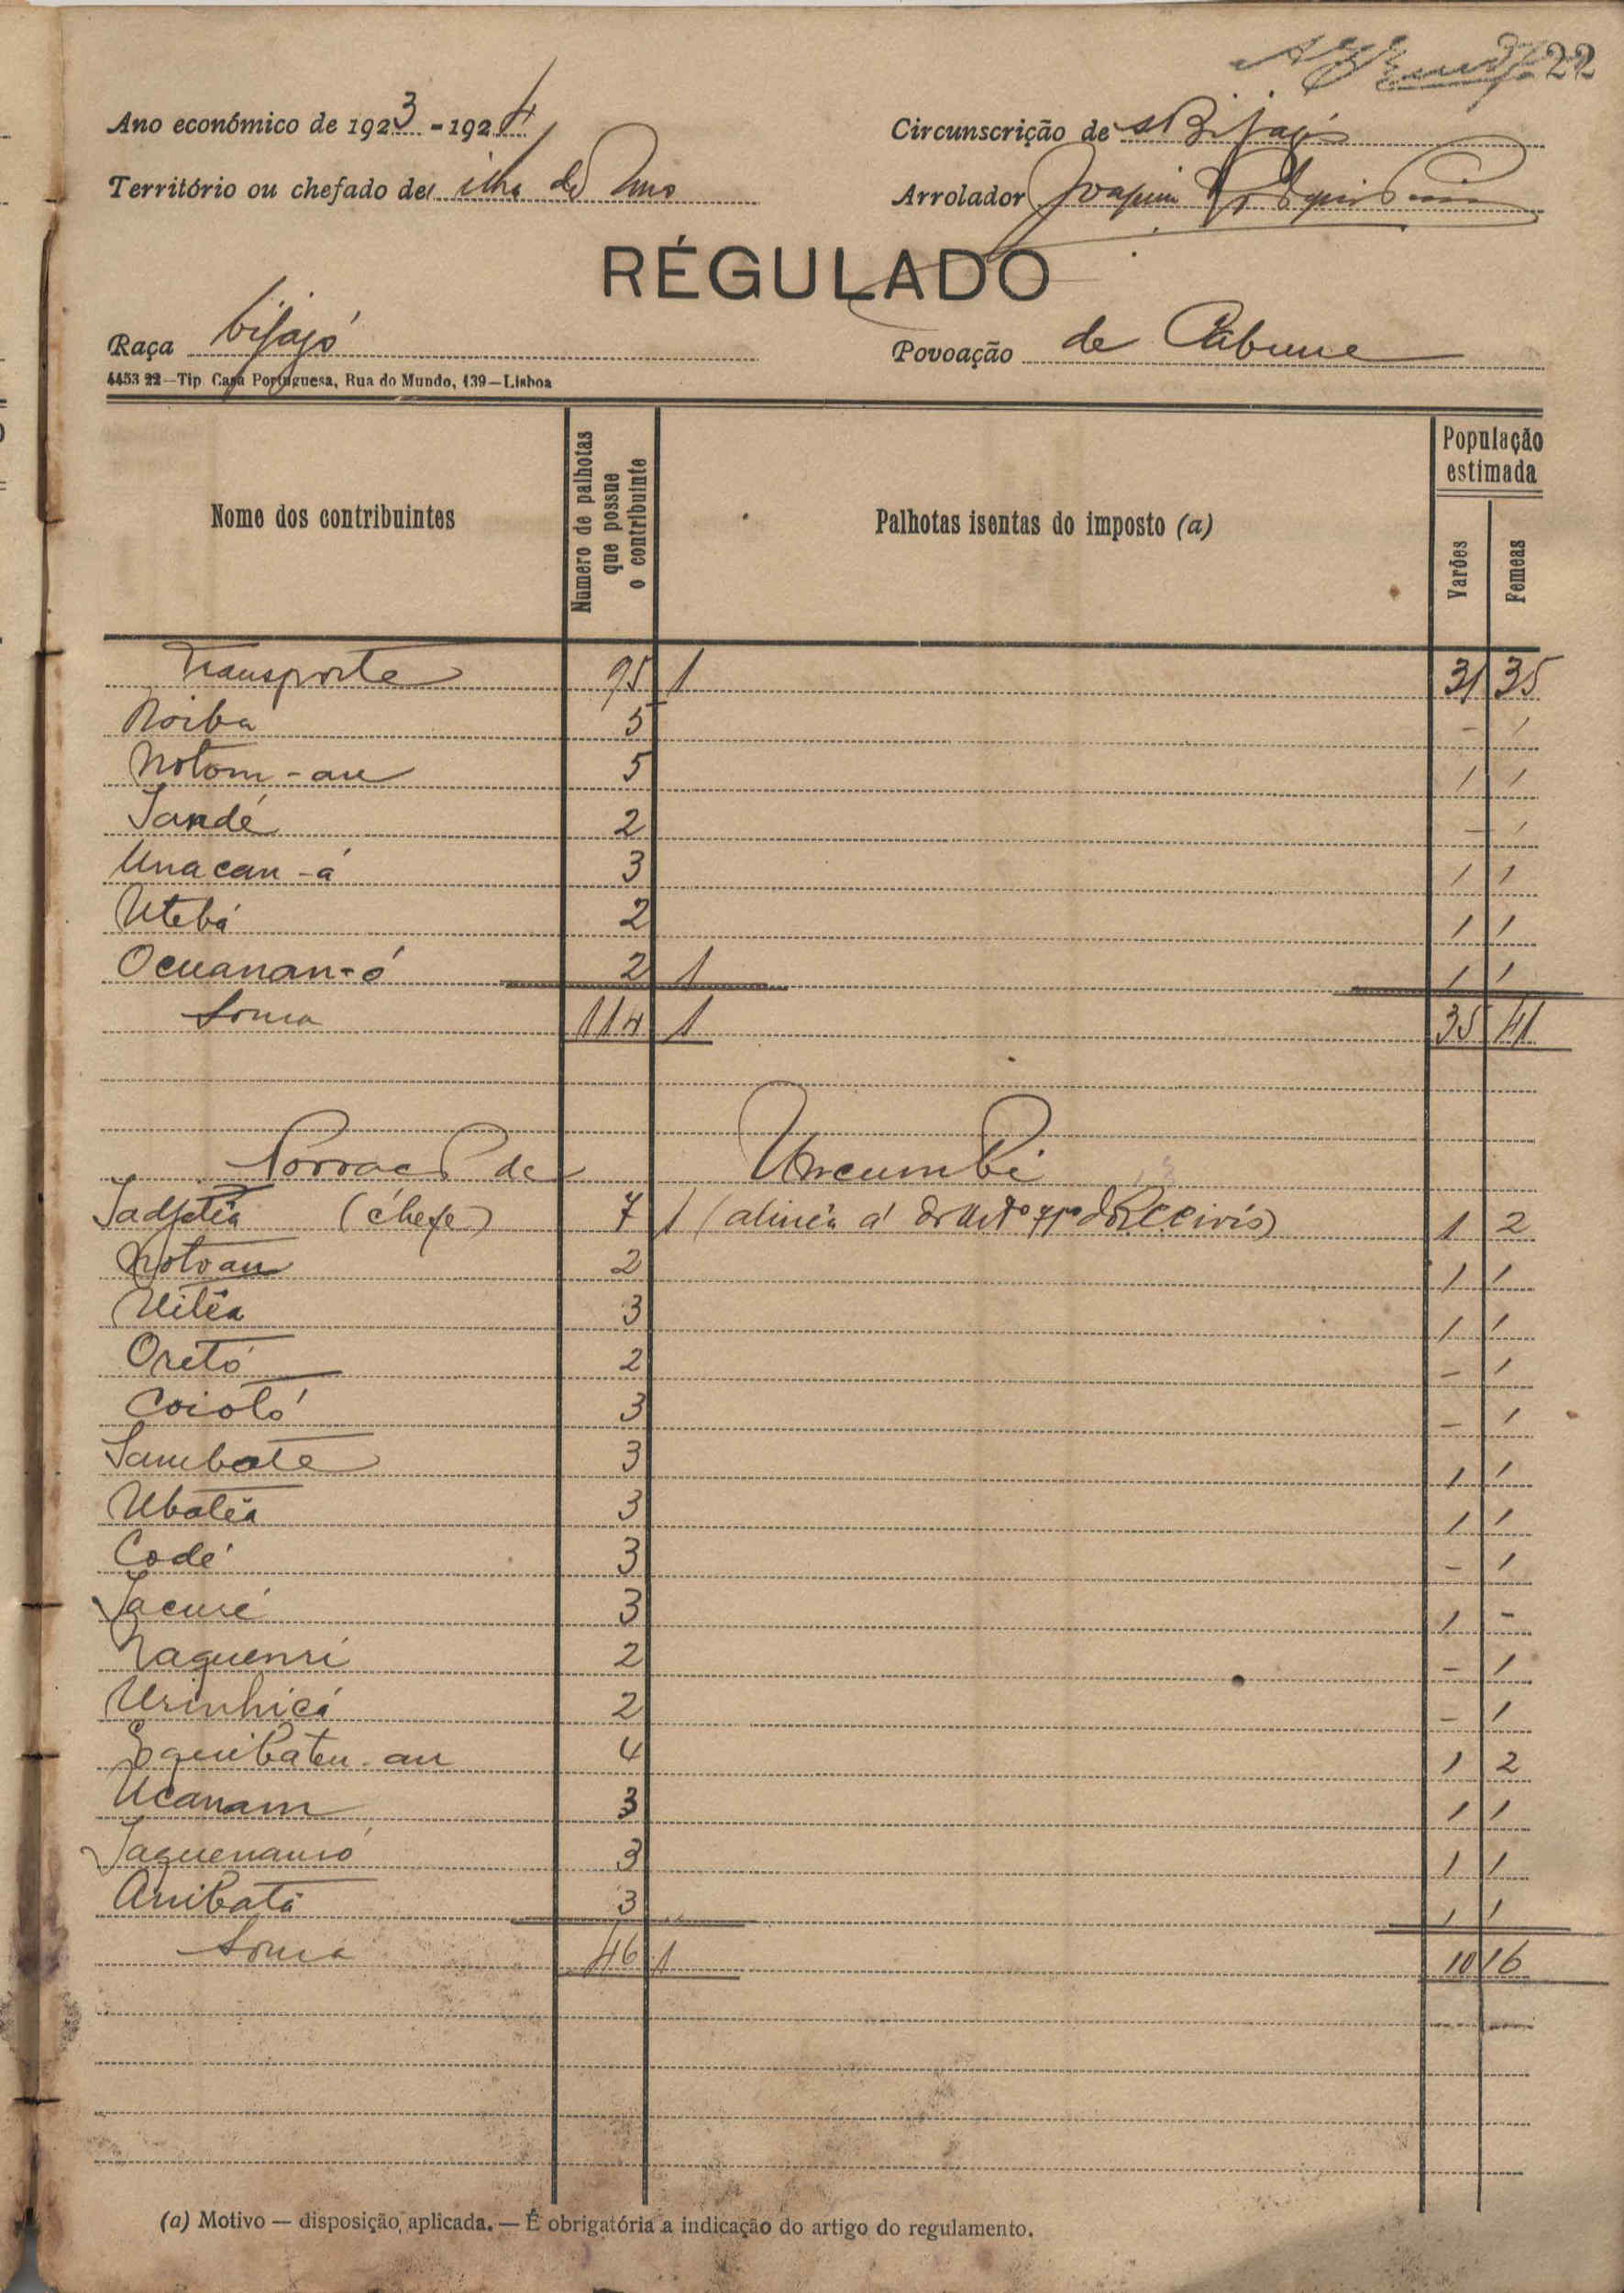 22
Ano económico de 1923-1924 Circunscrição de Bijagós
Território ou chefado de ilha de Uno Arrolador Joaquim
RÉGULADO
Raça bijagó Povoação de Cabune
4453 22—Tip Casa Portuguesa, Rua do Mundo, 139—Lisboa
Nome dos contribuintes Numero de palhotas que possue o contribuinte Palhotas isentas do imposto (a) População estimada Varões Femeas
Transporte 95 1 31 35
Noiba 5 - 1
Notom-au 5 1 1
Jandé 2 - 1
Unacan-á 3 1 1
Utebá 2 1 1
Ocuanan-ó 2 1 1 1
Soma 114 1 35 41
Povoação de Uncumbi
(chefe) 7 1 (alinea á do Art.º dos C. Civis) 1 2
Notoau 2 1 1
Uiléa 3 1 1
Oretó 2 - 1
Coioló 3 - 1
Sambate 3 1 1
Ubaléa 3 1 1
Codé 3 - 1
Jacuré 3 1 -
Naquenri 2 - 1
Urinhicá 2 - 1
Equibaten-au 4 1 2
Ucanam 3 1 1
Jaquenaunó 3 1 1
Anibatá 3 1 1
Soma 46 1 10 16
(a) Motivo — disposição aplicada. — É obrigatória a indicação do artigo do regulamento.